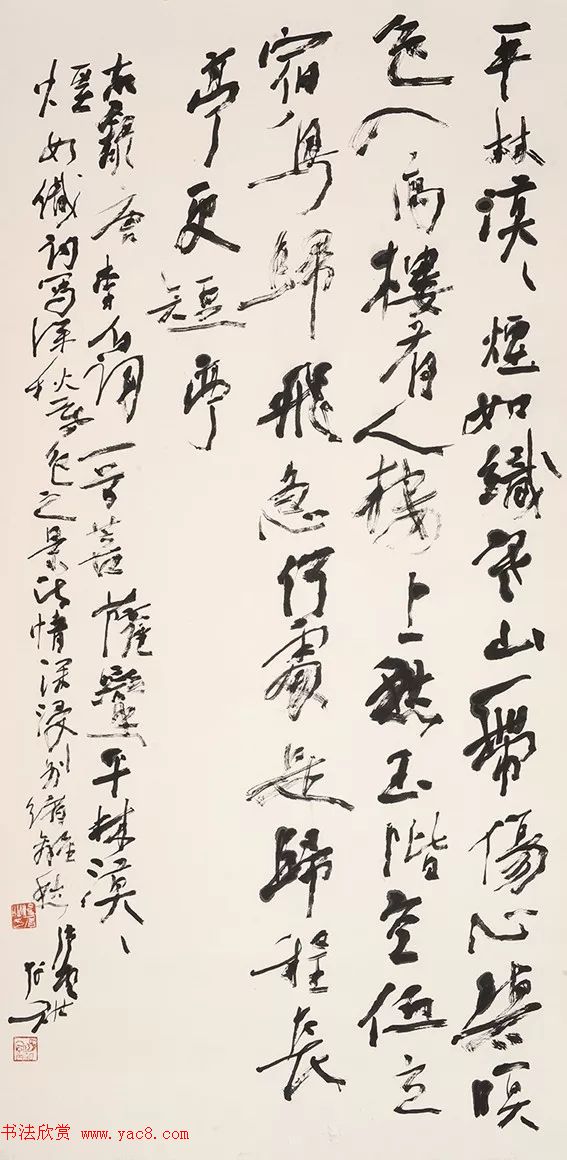 平林漠〻煙如織寒山一帶傷心碧暝
色入高樓有人樓上愁玉階空佇立
宿鳥歸飛急何處是歸程長
亭更短亭
右錄唐李白詞一首菩薩蠻平林漠〻
煙如織詞寫深秋暮色之景情深別緒離愁
书法欣赏 www.yac8.com